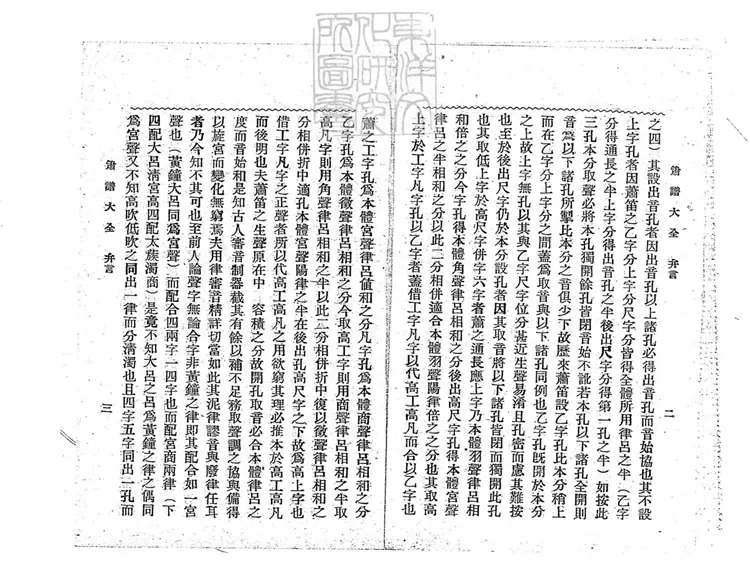 簫譜大全 弁言
二
之四）其設出音孔者因出音孔以上諸孔必得出音孔而音始協也其不設
上字孔者因蕭笛之乙字分上字分尺字分皆得全體所用律呂之半（乙字
分得通長之半上字分得出音孔之半後出尺字分得第一孔之半）如按此
三孔本分取聲必將本孔獨開餘孔皆閉音始不訛若本孔以下諸孔全開則
音為以下諸孔所掣此本分之音俱少下故歷來蕭笛設乙字孔此本分稍上
而在乙字分上字分之間蓋為取音與以下諸孔同例也乙字孔既開於本分
之上故上字無孔以其與乙字尺字位分甚近生聲易淆且孔密而慮其難按
也至於後出尺字仍於本分設孔者因其取音將以下諸孔皆閉而獨開此孔
也其取低上字於高尺字併字六字者蕭之通長應上字乃本體羽聲律呂相
和倍之之分今字孔得本體角聲律呂相和之分後出高尺字孔得本體宮聲
律呂之半相和之分以此二分相併適合本體羽聲陽律倍之之分也其取高
上字於工字凡字孔以乙字者蓋借工字凡字以代高工高凡而合以乙字也
蕭之工字孔為本體宮聲律呂値和之分凡字孔為本體商聲律呂相和之分
乙字孔為本體徵聲律呂相和之分今取高工字則用商聲律呂相和之半取
高凡字則用角聲律呂相和之半以此二分相併折中復以徵聲律呂相和之
分相併折中適孔本體宮聲陽律之半在後出孔高尺字之下故為高上字也
借工字凡字之正聲者所以代高工高凡之用欲窮其理必推本於高工高凡
而後明也夫蕭笛之生聲原在中 容積之分故開孔取音必合本體律呂之
度而音始和是知古人審音制器截其有餘以補不足務取聲調之協與備得
以旋宮而變化無窮焉夫用律審音精詳切當如此其泥律謬音與廢律任耳
者乃今知不其可也至前人論聲字無論合字非黃鐘之律即其配合如一宮
聲也（黃鐘大呂同為宮聲）而配合四兩字一四字也而配宮商兩律（下
四配大呂清宮高四配太蔟濁商）是竟不知大呂之呂為黃鐘之律之偶同
為宮聲又不知高吹低吹之同出一律而分清濁也且四字五字同出一孔而
簫譜大全 弁言
三